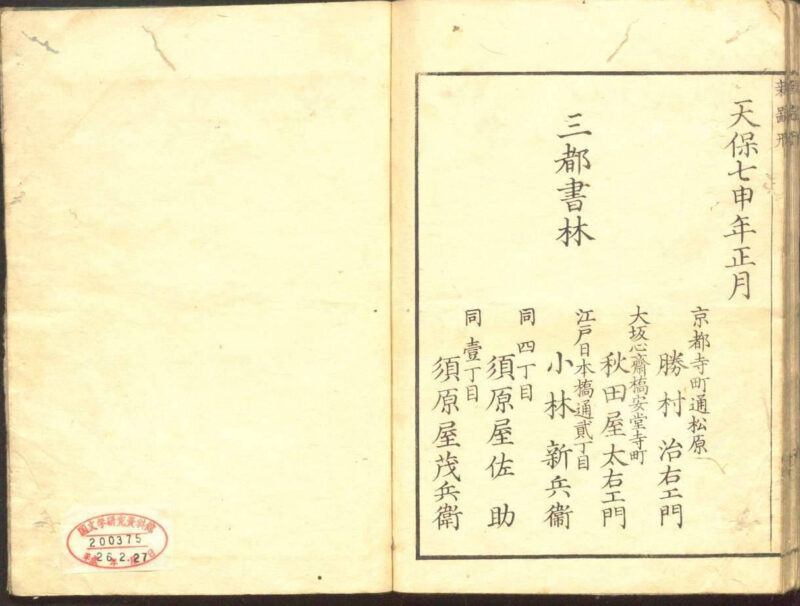 天保七申年正月
三都書林
京都寺町通松原
勝村治右エ門
大坂心齋橋安堂寺町
秋田屋太右エ門
江戸日本橋通貳丁目
小林新兵衞
同四丁目
須原屋佐助
同壹丁目
須原屋茂兵衛
国文学研究資料館
200375
26.2.27